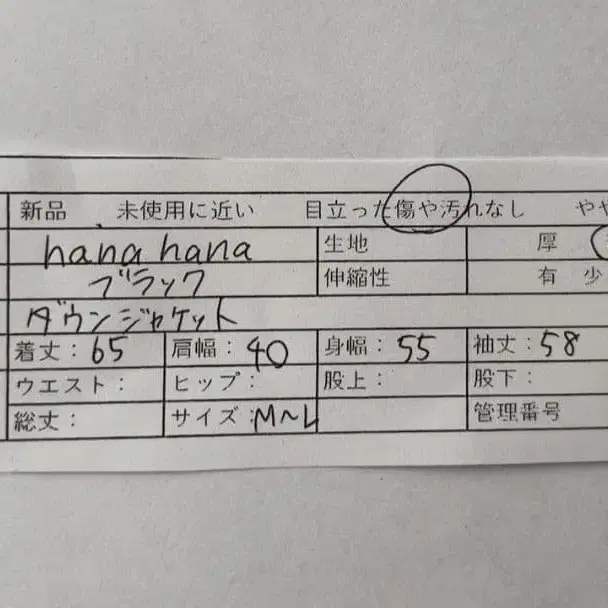 新品 、未使用に近い 目立った傷や汚れなし やや
hana hana 生地 厚
ブラック 伸縮性 有 少
ダウンジャケット
着丈：65 肩幅：40 身幅：55 袖丈：58
ウエスト： ヒップ： 股上： 股下：
総丈： サイズ：M～L 管理番号